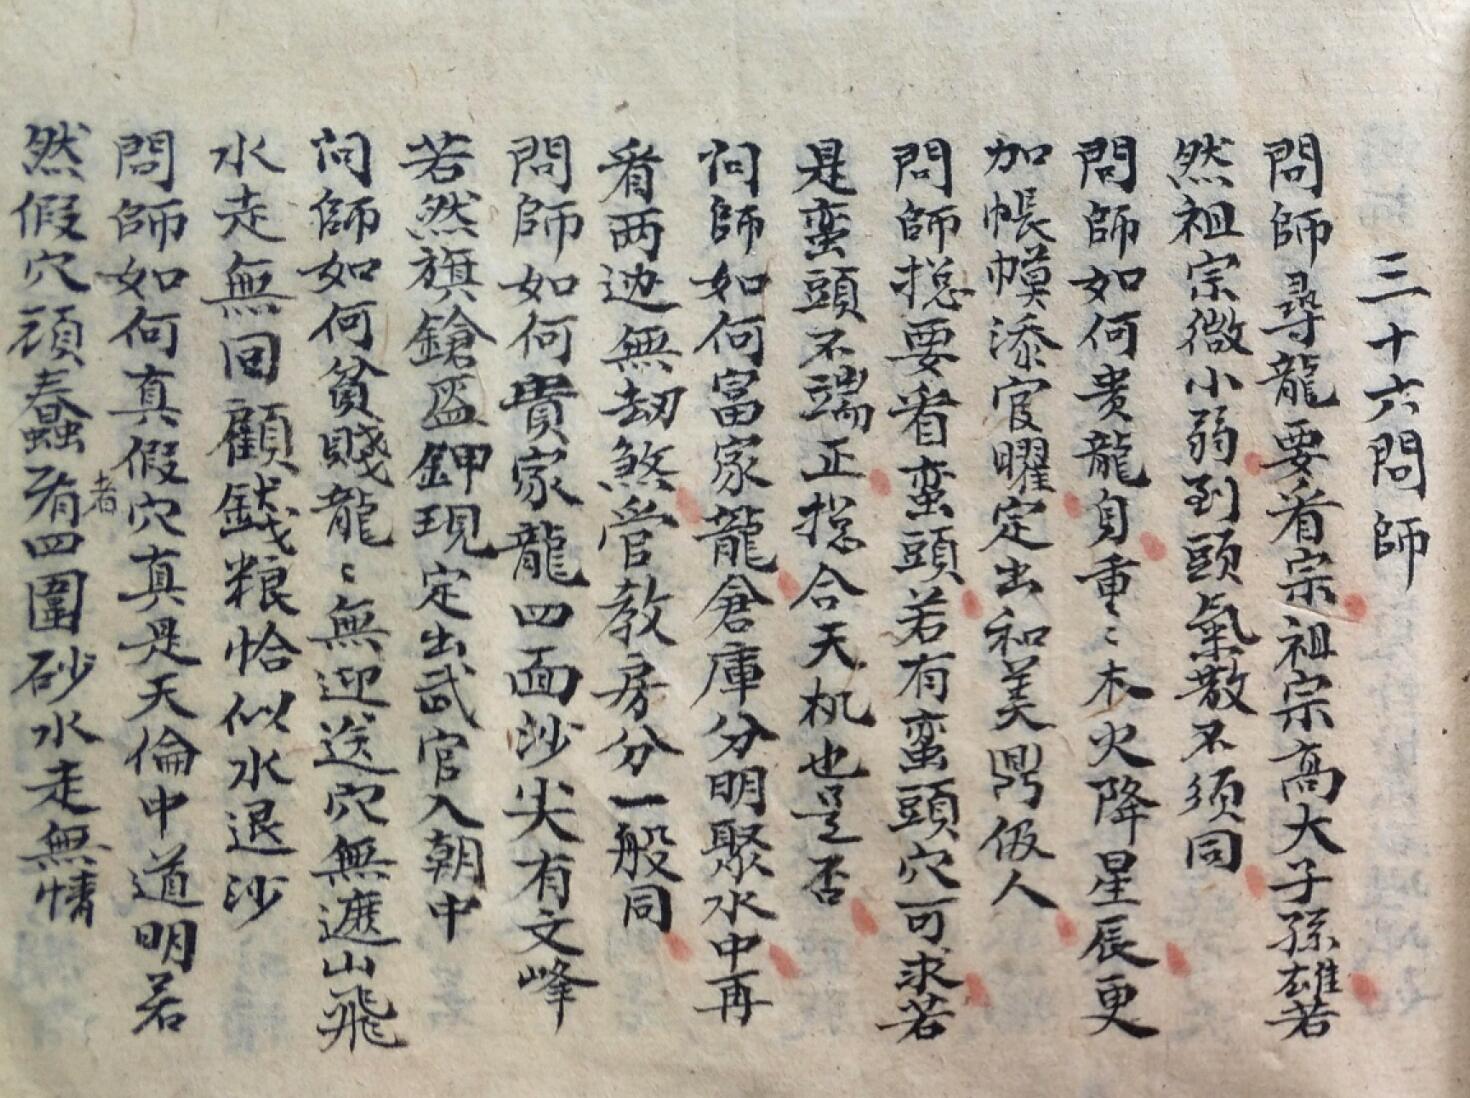 三十六問師
問師尋龍要看宗祖宗高大子孫雄若
然祖宗微小弱到頭氣散不須同
問師如何贵龍身重〻木火降星辰更
加帳幙添官曜定出和美門伋人
問師捴要看蛮頭若有蛮頭穴可求若
是蛮頭不端正捴合天机也是否
问師如何富家龍倉庫分明聚水中再
看两边無劫煞管教房分一般同
問師如何貴家龍四面沙尖有文峰
若然旗鎗盔鉀現定出武官入朝中
问師如何貧賤龍〻無迎送穴無遮山飛
水走無回顧錢粮恰似水退沙
問師如何真假穴真是天倫中道明若
然假穴頑蠢有者四圍砂水走無情